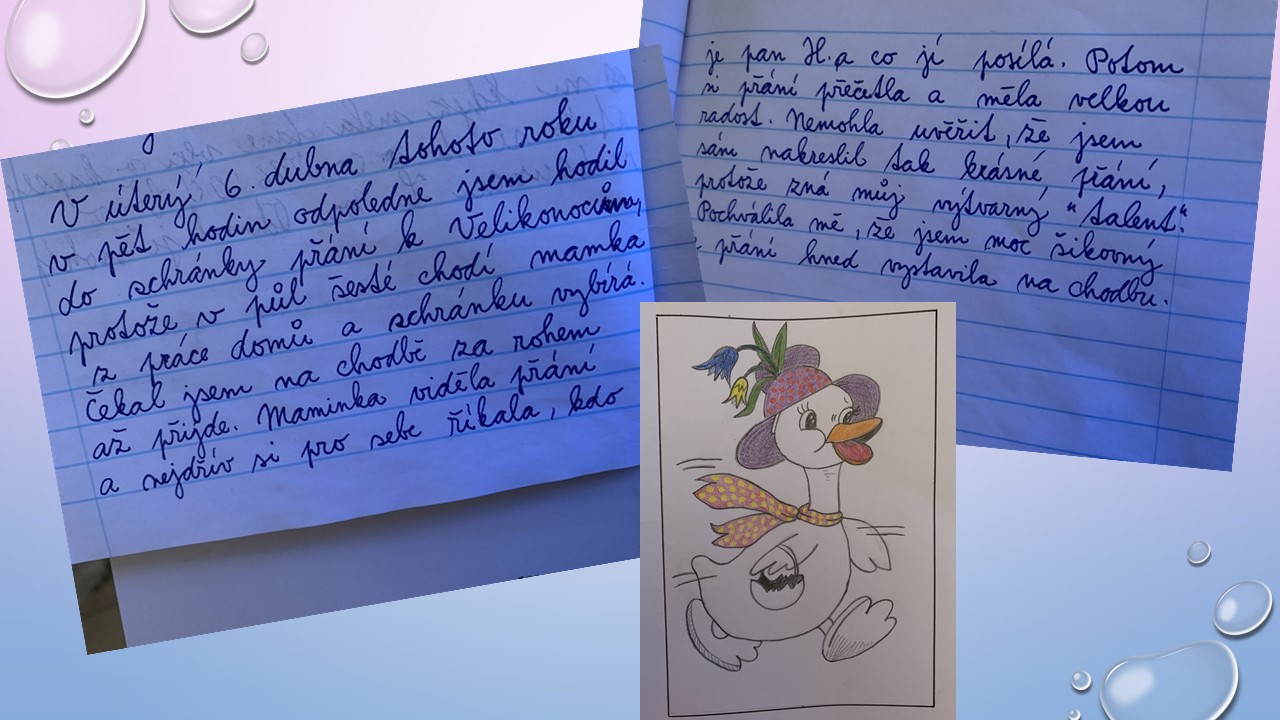 V úterý 6. dubna tohoto roku
v pět hodin odpoledne jsem hodil
do schránky přání k Velikonocům,
protože v půl šesté chodí mamka
z práce domů a schránku vybírá.
Čekal jsem na chodbě za rohem
až přijde. Maminka viděla přání
a nejdřív si pro sebe říkala, kdo
je pan H. a co jí posílá. Potom
si přání přečetla a měla velkou
radost. Nemohla uvěřit, že jsem
sám nakreslil tak krásné přání,
protože zná můj výtvarný "talent".
Pochválila mě, že jsem moc šikovný
přání hned vystavila na chodbu.